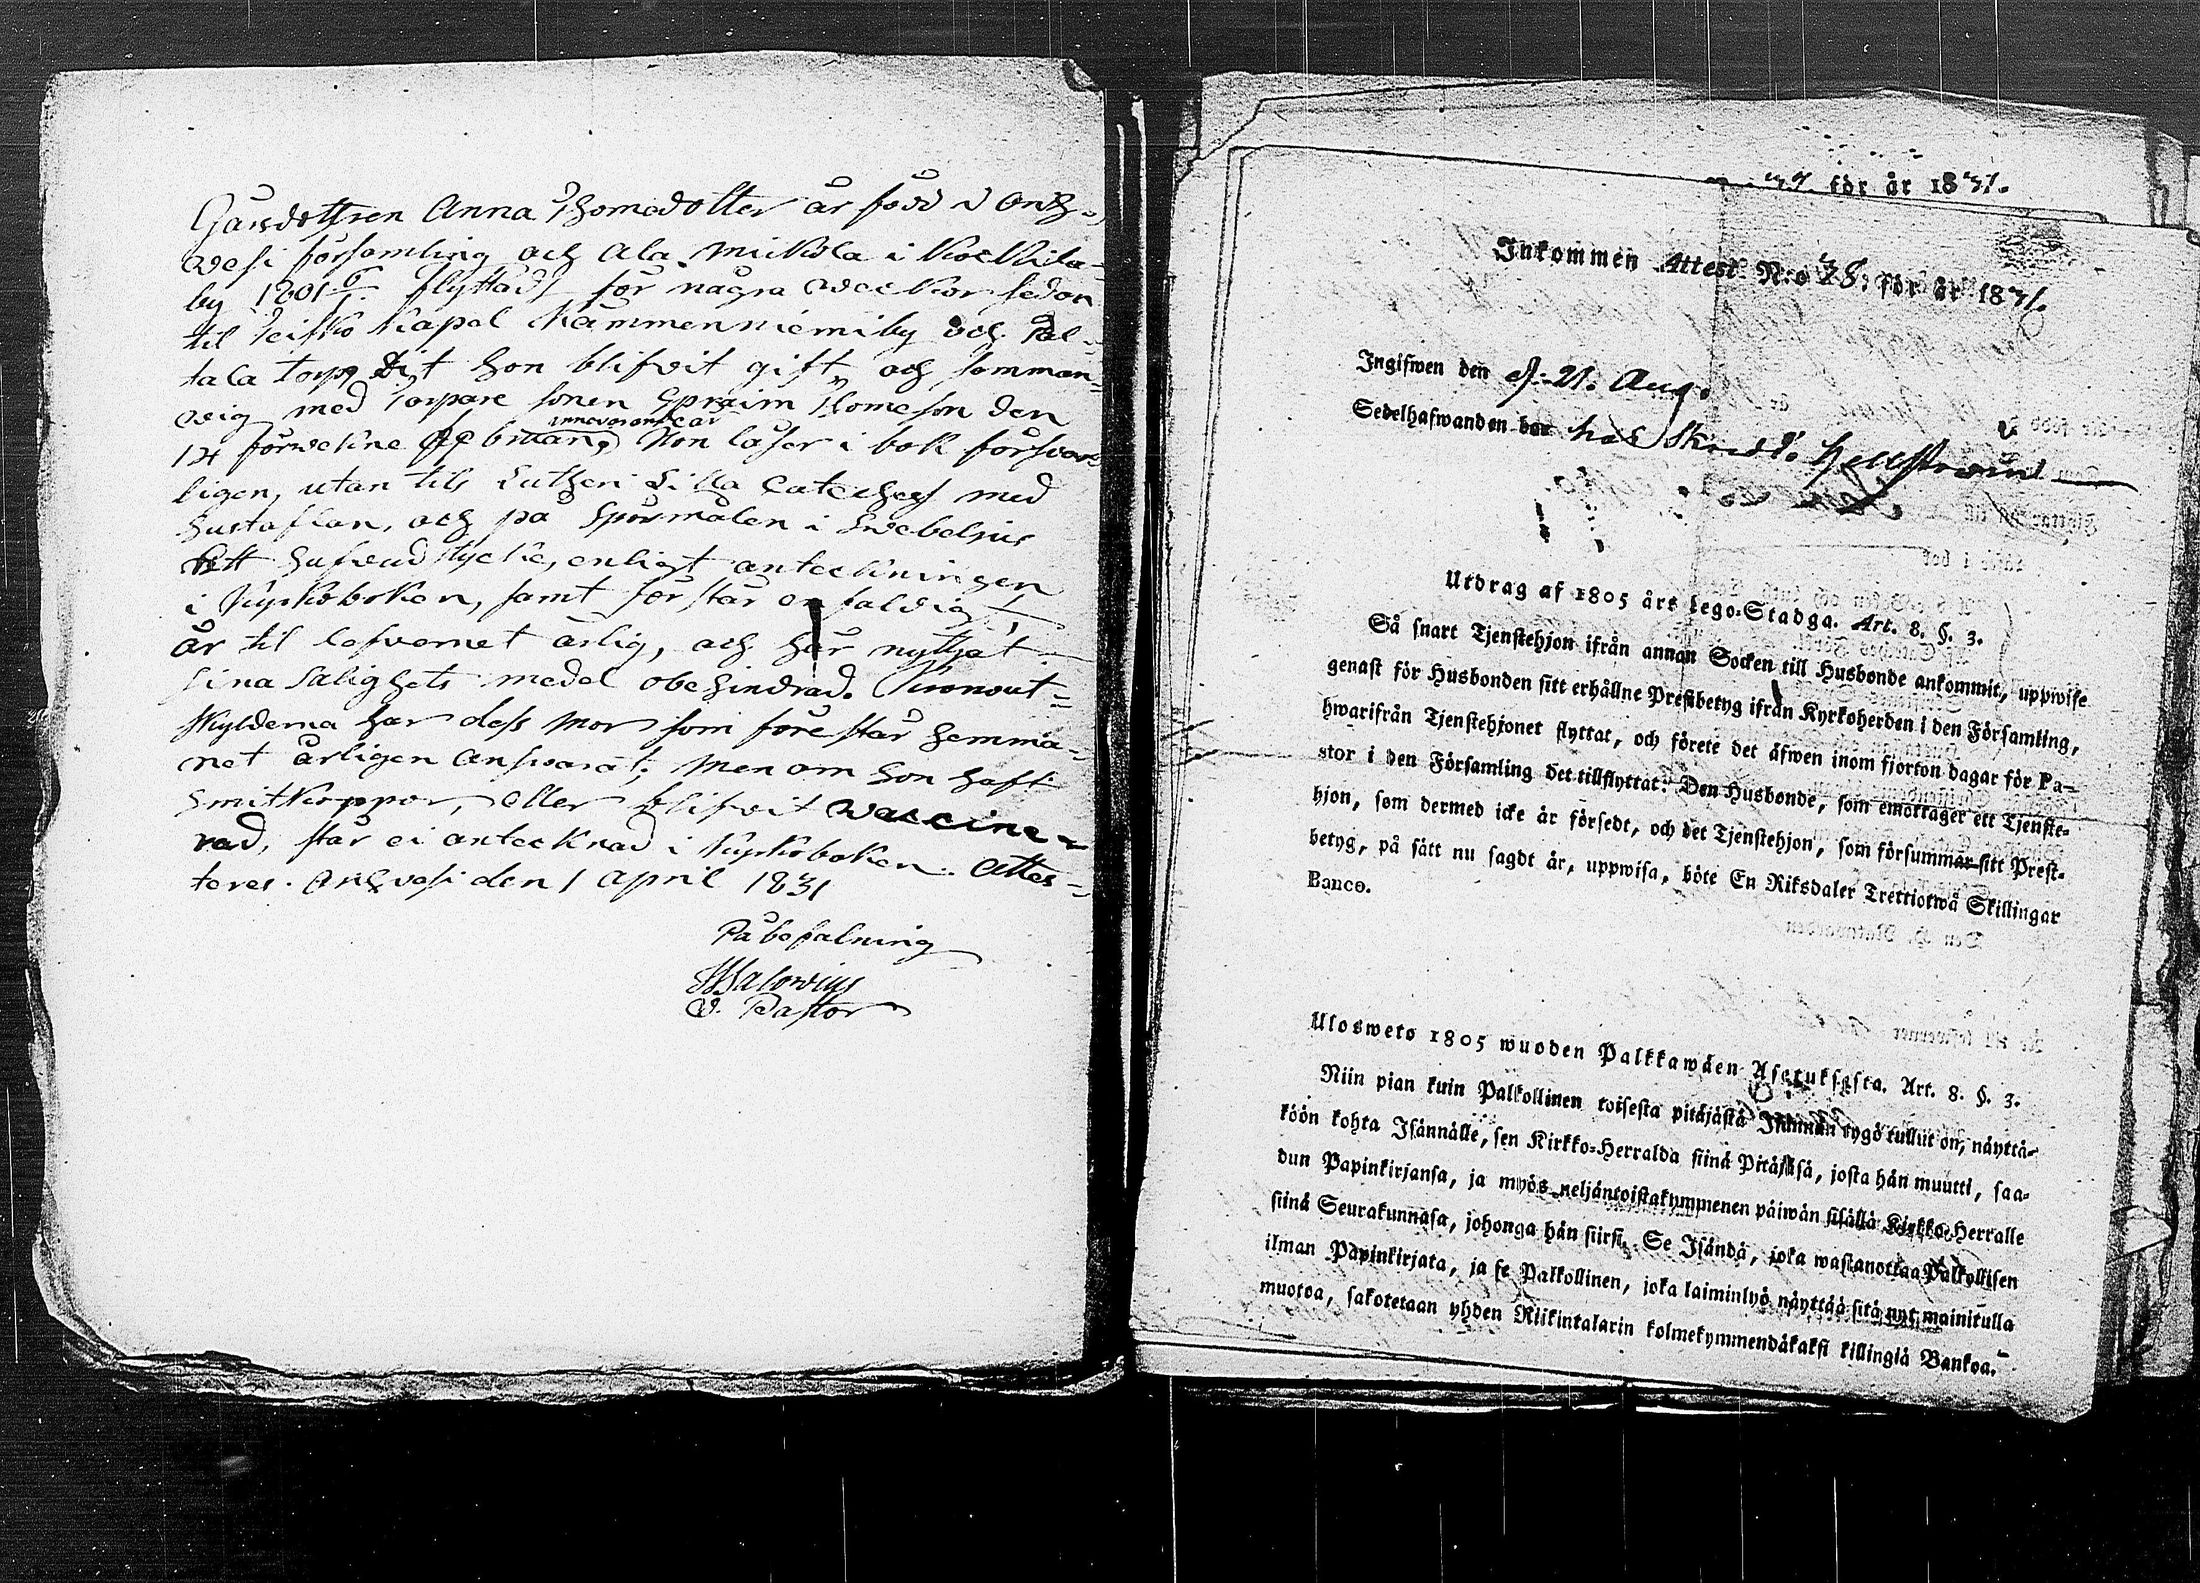 Gårdottren Anna Thomedotter är född i Onk-
vesi församling och Ala Mikola i Kockila
by 1801 6/1. flyttade för några veckor sedan
til Teisko Kapel Kämmenniemi by och Pal-
tala torp, dit hon blifvit gift och samman-
vig med Torpare sonen Epraim Thomeson den
innevarande år
14 förvekne Februari, Hon läser i bok försvar-
ligen, utan til Lutheri Lilla Cateches med
hustaflan, och på Spörsmålen i Svebelius
Ett hufvudstycke, enligt anteckningen
i Kyrkoboken, samt förstår enfaldig
är til lefvernet ärlig, och har nyttjat
sina Salighets medel obehindrad. Kronout-
skylderna har dess Mor som förestår hemma-
net årligen ansvarat; Men om hon haft
Smitkoppor, eller blifvit vaccine-
rad, står ei antecknad i Kyrkoboken. Attes-
teras. Orihvesi den 1 April 1831
På befalning
V. Pastor
för år 1831.
Inkommen Attest N:o 28. för år 1831.
Ingifwen den d. 21. Aug.
Sedelhafwanden har hos
Utdrag af 1805 års Lego-Stadga. Art. 8. §. 3.
Så snart Tjenstehjon ifrån annan Socken till Husbonde ankommit, uppwise
genast för Husbonden sitt erhållne Prestbetyg ifrån Kyrkoherden i den Församling,
hwarifrån Tjenstehjonet flyttat, och förete det äfwen inom fjorton dagar för Pa-
stor i den Församling det tillflyttat: Den Husbonde, som emottager ett Tjenste-
hjon, som dermed icke är försedt, och det Tjenstehjon, som försummar sitt Prest-
betyg, på sätt nu sagdt är, uppwisa, böte En Riksdaler Trettiotwå Skillingar
Banco.
Ulosweto 1805 wuoden Palkkawäen Asetuksesta. Art. 8. §. 3.
Niin pian kuin Palkollinen toisesta pitäjästä Isännän tygö tullut on, näyttä-
köön kohta Isännälle, sen Kirkko-Herralda siinä Pitäjäsä, josta hän muutti, saa-
dun Papinkirjansa, ja myös neljäntoistakymmenen päiwän sisällä Kirkko-Herralle
siinä Seurakunnasa, johonga hän siirsi. Se Isändä, joka wastanottaa Palkollisen
ilman Papinkirjata, ja se Palkollinen, joka laiminlyö näyttää sitä nyt mainitulla
muotoa, sakotetaan yhden Riikintalarin kolmekymmendäkaksi killingiä Bankoa.